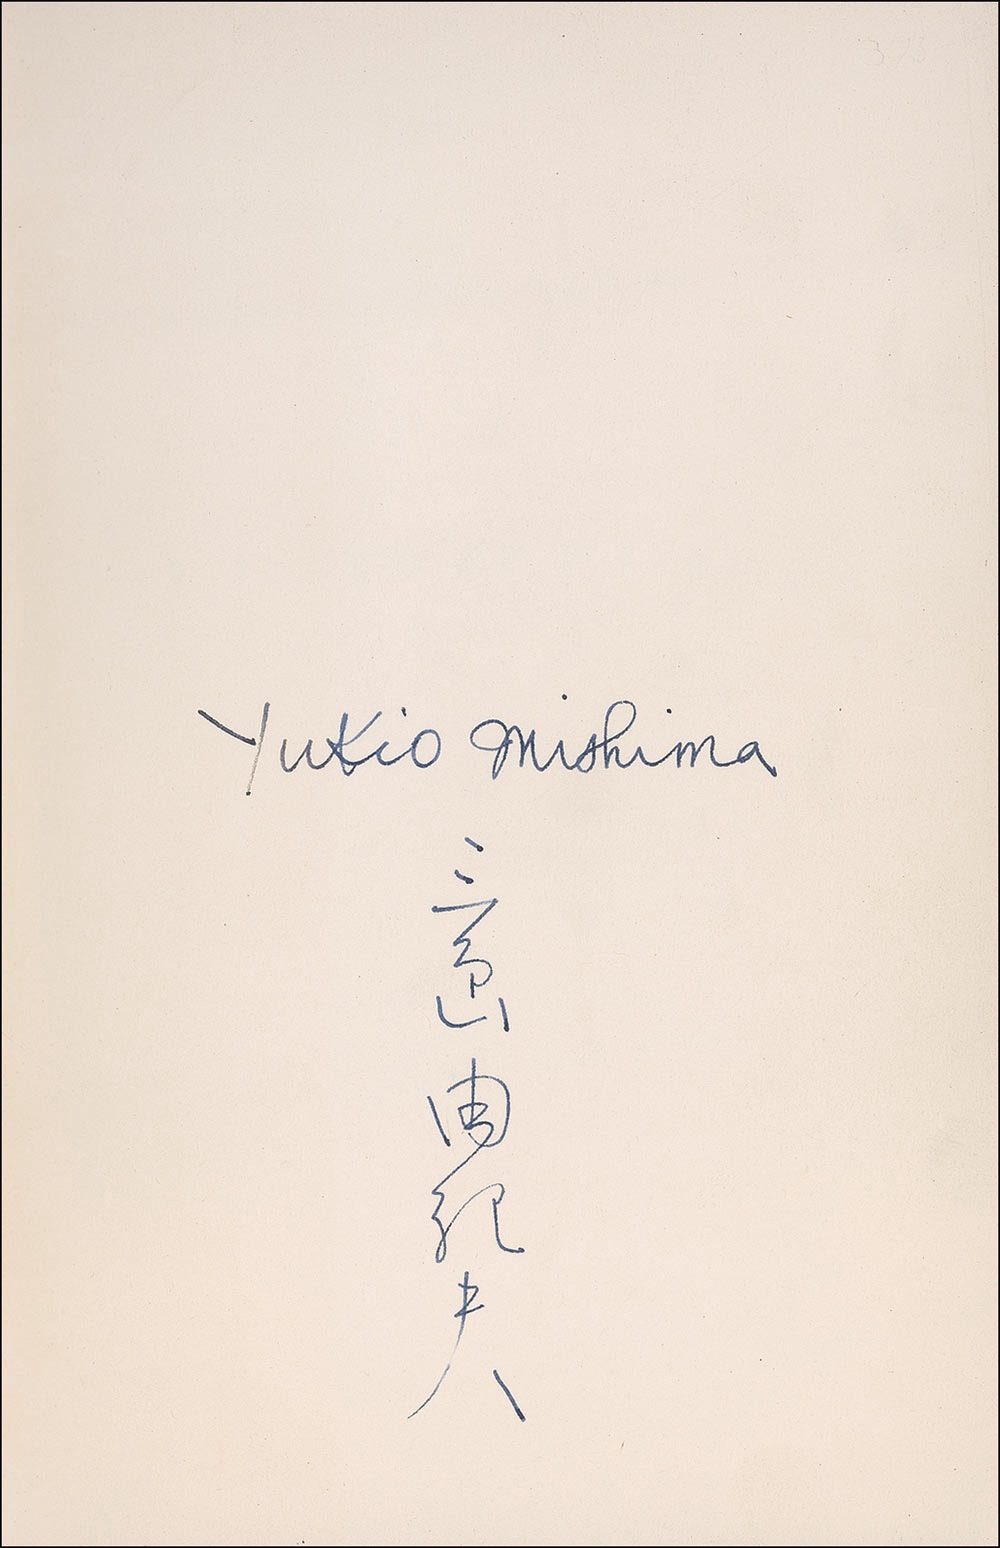 Yukio Mishima
三島由紀夫